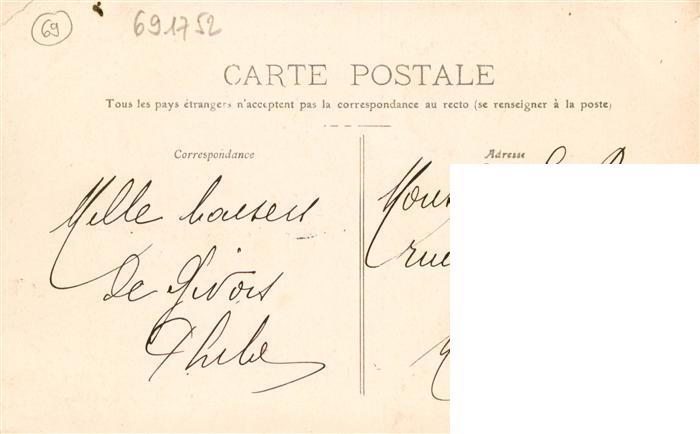 69
691752
CARTE POSTALE
Tous les pays étrangers n'acceptent pas la correspondance au recto (se renseigner à la poste)
Correspondance
Mille baisers
de Givors
Adresse
rue